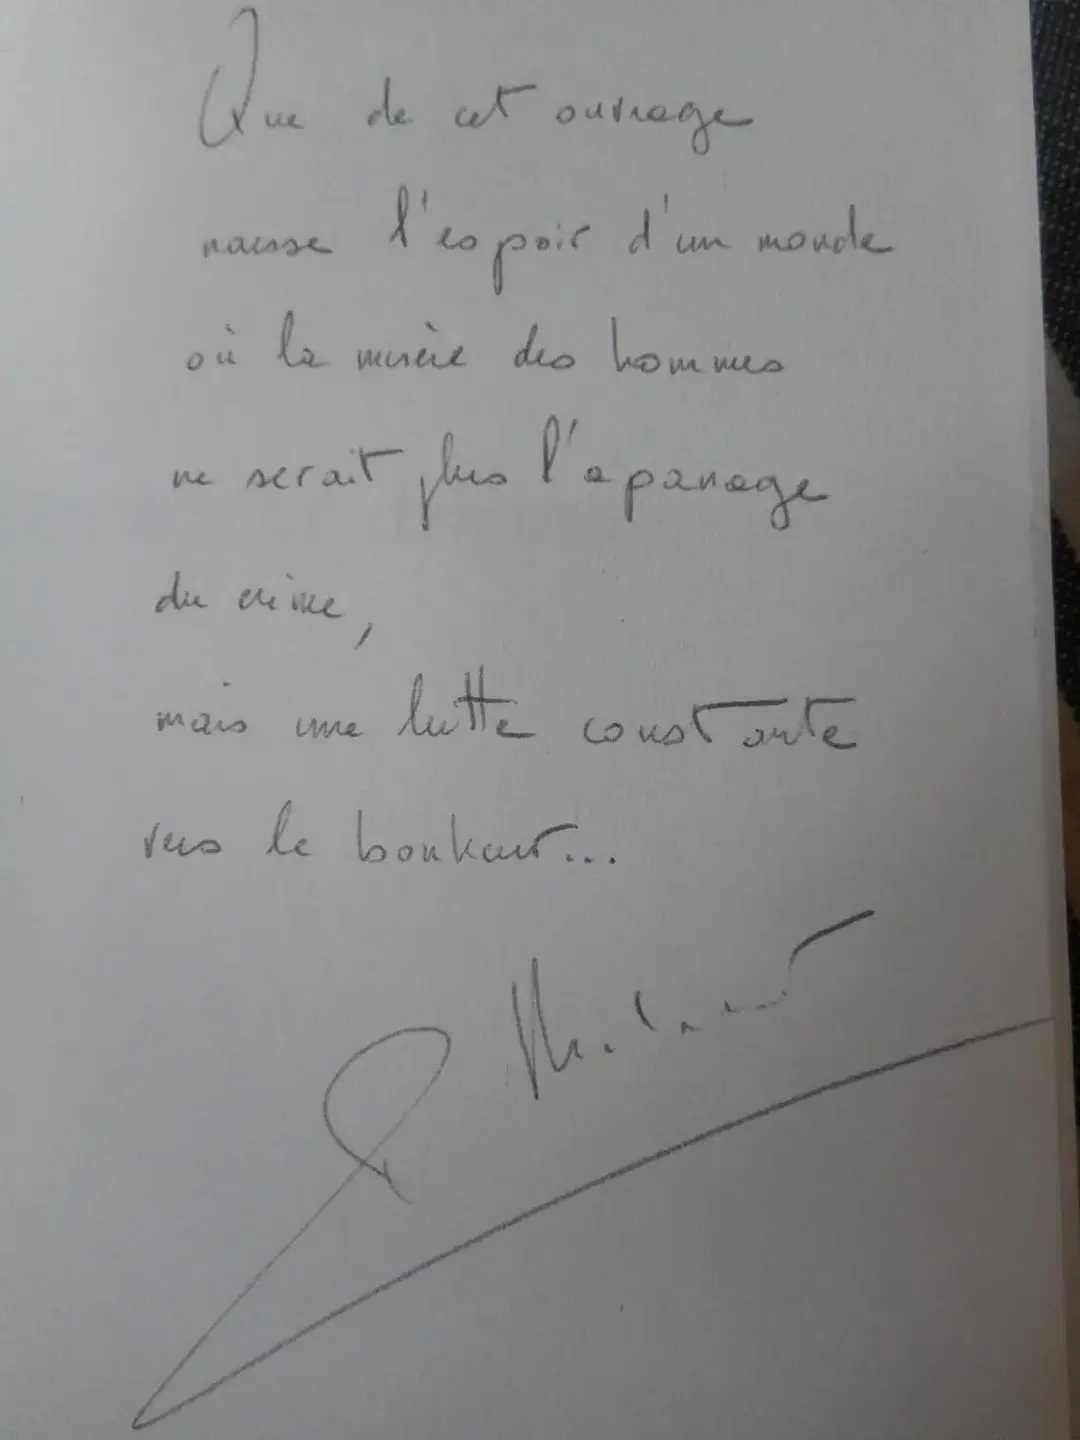 Que de cet ouvrage
naisse l'espoir d'un monde
où la misère des hommes
ne serait plus l'apanage
du crime,
mais une lutte constante
vers le bonheur...